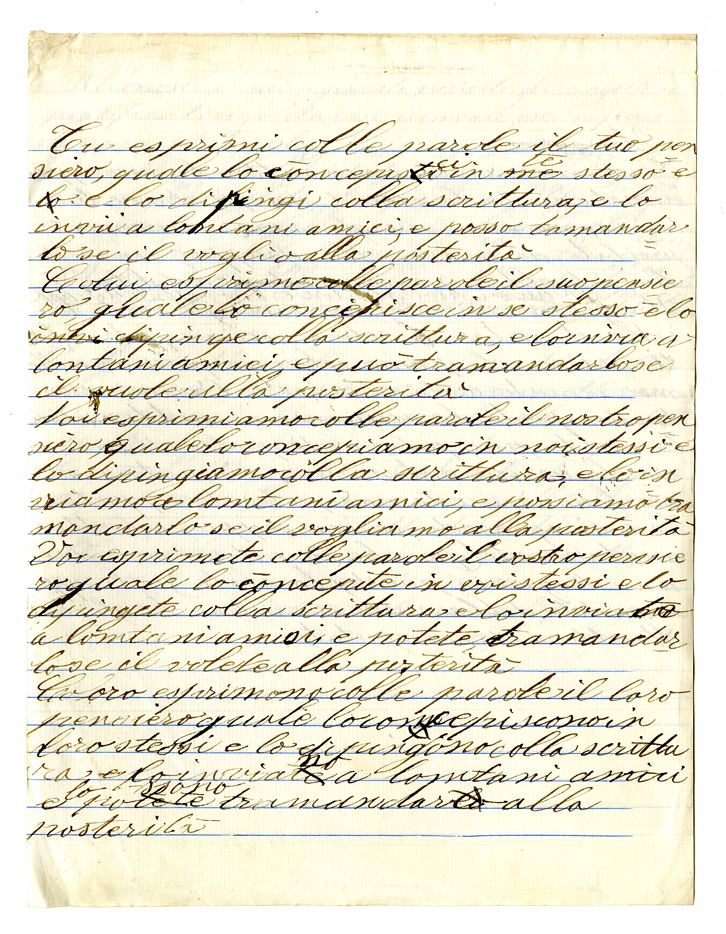 Tu esprimi colle parole il tuo pen
siero, quale lo concepisci in te stesso e
lo dipingi colla scrittura, e lo
invii a lontani amici, e posso tamandar
lo se il voglio alla posterità
Colui esprime colle parole il suo pensie
ro quale lo concepisce in se stesso e lo
dipinge colla scrittura, e lo invia a
lontani amici, e può tramandarlo se
il vuole alla posterità
Noi esprimiamo colle parole il nostro pen
siero quale lo concepiamo in noi stessi e
lo dipingiamo colla scrittura, e lo in
viamo a lomtani amici, e possiamo tra
mandarlo se il vogliamo alla posterità
Voi esprimete colle parole il vostro pensie
ro quale lo concepite in voi stessi e lo
dipingete colla scrittura e lo inviate
a lomtani amici, e potete tramandar
lo se il volete alla posterità
Coloro esprimono colle parole il loro
pensiero quale lo concepiscono in
loro stessi e lo dipingono colla scrittu
ra, e lo inviano a lomtani amici
e lo possono tramandare alla
posterità